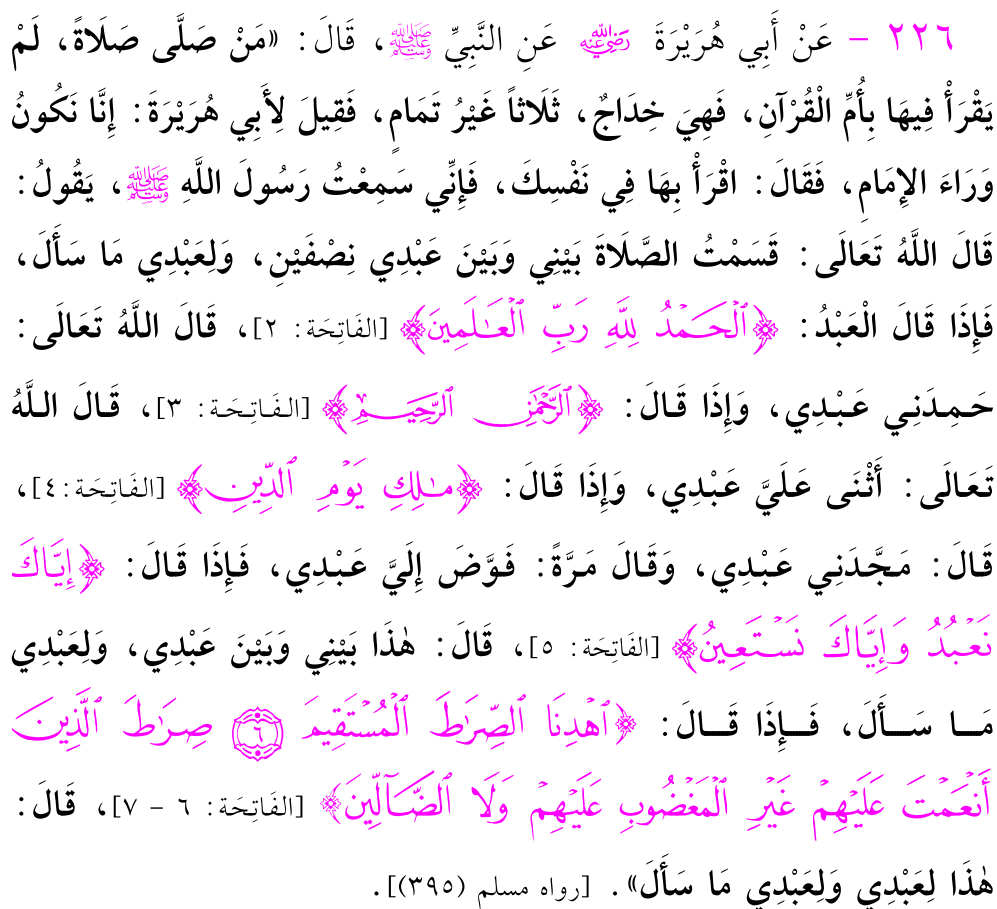 ٢٢٦ - عَنْ أَبِي هُرَيْرَةَ رضي الله عنه عَنِ النَّبِيِّ ﷺ، قَالَ: «مَنْ صَلَّى صَلَاةً، لَمْ
يَقْرَأْ فِيهَا بِأُمِّ الْقُرْآنِ، فَهِيَ خِدَاجٌ، ثَلَاثاً غَيْرُ تَمَامٍ، فَقِيلَ لِأَبِي هُرَيْرَةَ: إِنَّا نَكُونُ
وَرَاءَ الإِمَامِ، فَقَالَ: اقْرَأْ بِهَا فِي نَفْسِكَ، فَإِنِّي سَمِعْتُ رَسُولَ اللَّهِ ﷺ، يَقُولُ:
قَالَ اللَّهُ تَعَالَى: قَسَمْتُ الصَّلَاةَ بَيْنِي وَبَيْنَ عَبْدِي نِصْفَيْنِ، وَلِعَبْدِي مَا سَأَلَ،
فَإِذَا قَالَ الْعَبْدُ: ﴿ٱلْحَمْدُ لِلَّهِ رَبِّ ٱلْعَٰلَمِينَ﴾ [الفَاتِحَة: ٢]، قَالَ اللَّهُ تَعَالَى:
حَمِدَنِي عَبْدِي، وَإِذَا قَالَ: ﴿ٱلرَّحْمَٰنِ ٱلرَّحِيمِ﴾ [الفَاتِحَة: ٣]، قَالَ اللَّهُ
تَعَالَى: أَثْنَى عَلَيَّ عَبْدِي، وَإِذَا قَالَ: ﴿مَٰلِكِ يَوْمِ ٱلدِّينِ﴾ [الفَاتِحَة: ٤]،
قَالَ: مَجَّدَنِي عَبْدِي، وَقَالَ مَرَّةً: فَوَّضَ إِلَيَّ عَبْدِي، فَإِذَا قَالَ: ﴿إِيَّاكَ
نَعْبُدُ وَإِيَّاكَ نَسْتَعِينُ﴾ [الفَاتِحَة: ٥]، قَالَ: هٰذَا بَيْنِي وَبَيْنَ عَبْدِي، وَلِعَبْدِي
مَا سَأَلَ، فَإِذَا قَالَ: ﴿ٱهْدِنَا ٱلصِّرَٰطَ ٱلْمُسْتَقِيمَ ۝٦ صِرَٰطَ ٱلَّذِينَ
أَنْعَمْتَ عَلَيْهِمْ غَيْرِ ٱلْمَغْضُوبِ عَلَيْهِمْ وَلَا ٱلضَّآلِّينَ﴾ [الفَاتِحَة: ٦ - ٧]، قَالَ:
هٰذَا لِعَبْدِي وَلِعَبْدِي مَا سَأَلَ». [رواه مسلم (٣٩٥)].